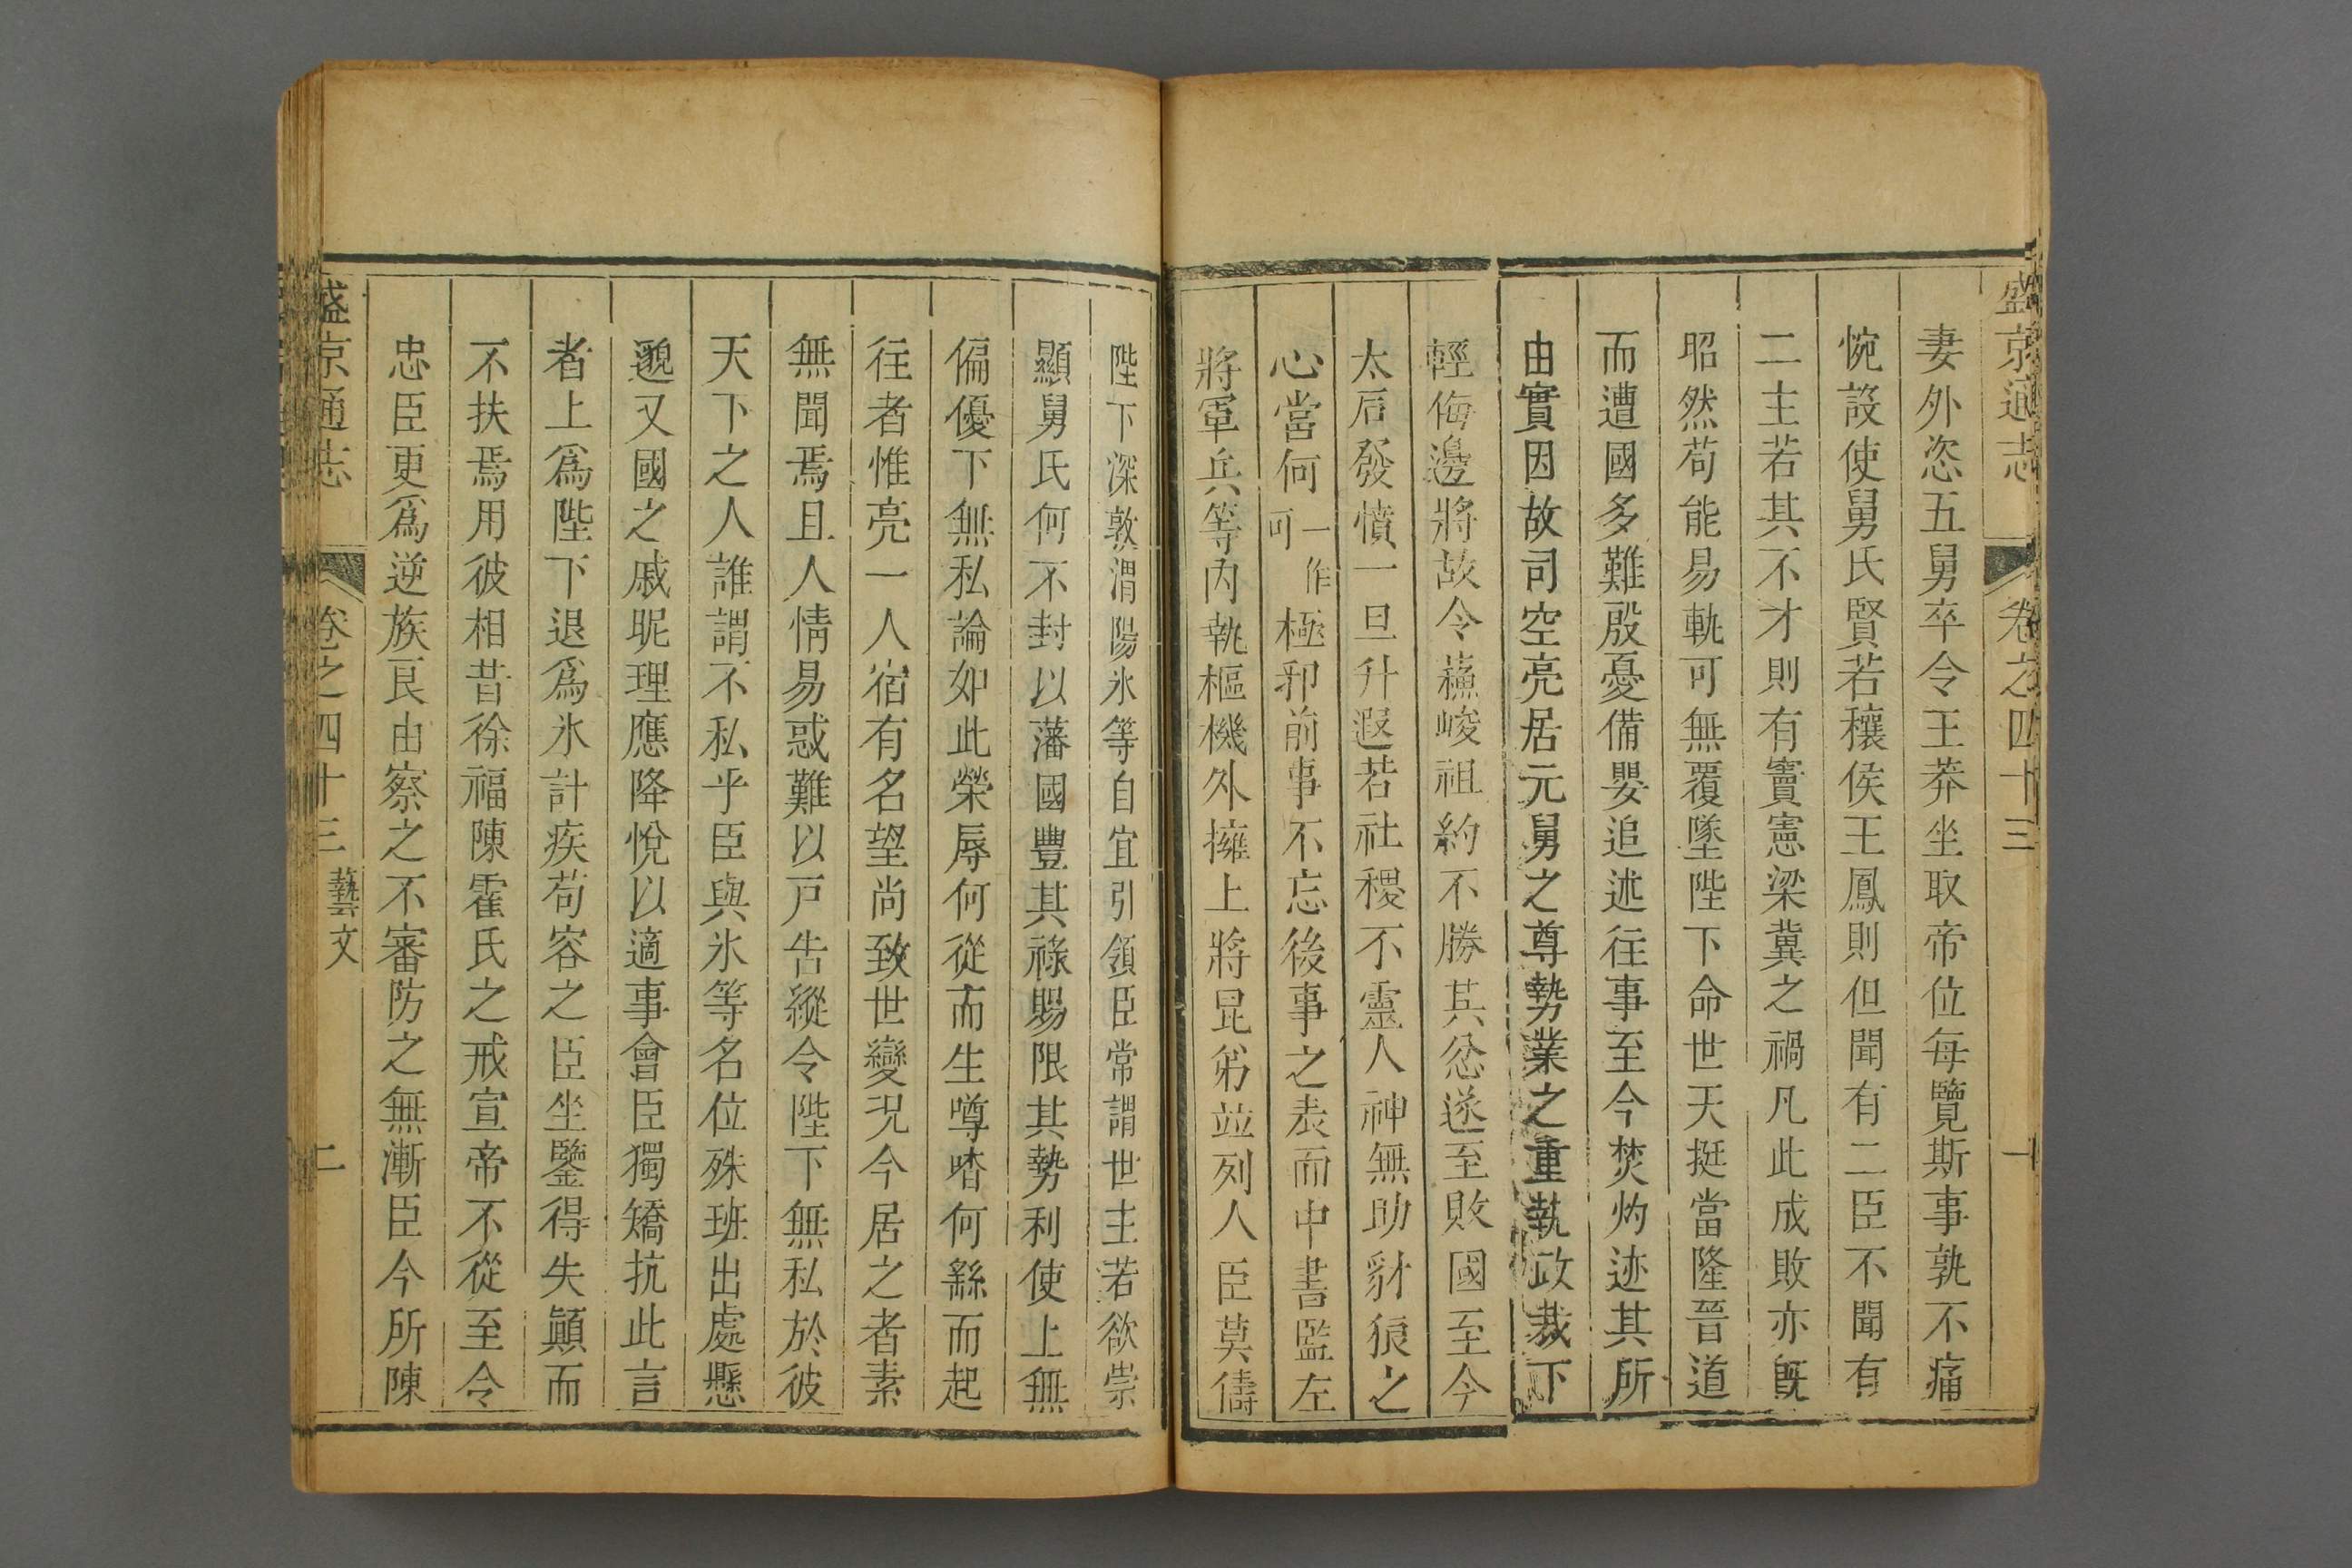 盛京通志 卷之四十三 一
妻外恣五舅卒令王莽坐取帝位每覽斯事孰不痛
惋設使舅氏賢若穰侯王鳳則但聞有二臣不聞有
二主若其不才則有竇憲梁冀之禍凡此成敗亦旣
昭然苟能易軌可無覆墜陛下命世天挺當隆晉道
而遭國多難殷憂備嬰追述往事至今焚灼迹其所
由實因故司空亮居元舅之尊勢業之重執政裁下
輕侮邊將故令蘇峻祖約不勝其忿遂至敗國至今
太后發憤一旦升遐若社稷不靈人神無助豺狼之
心當何一作可極邪前事不忘後事之表而中書監左
將軍兵等內執樞機外擁上將昆弟並列人臣莫儔
陛下深敦渭陽氷等自宜引領臣常謂世主若欲崇
顯舅氏何不封以藩國豐其祿賜限其勢利使上無
偏優下無私論如此榮辱何從而生噂喈何繇而起
往者惟亮一人宿有名望尚致世變况今居之者素
無聞焉且人情易惑難以戸告縱令陛下無私於彼
天下之人誰謂不私乎臣與氷等名位殊班出處懸
邈又國之戚昵理應降悅以適事會臣獨矯抗此言
者上爲陛下退爲氷計疾苟容之臣坐鑒得失顚而
不扶焉用彼相昔徐福陳霍氏之戒宣帝不從至令
忠臣更爲逆族良由察之不審防之無漸臣今所陳
盛京通志 卷之四十三 藝文 二